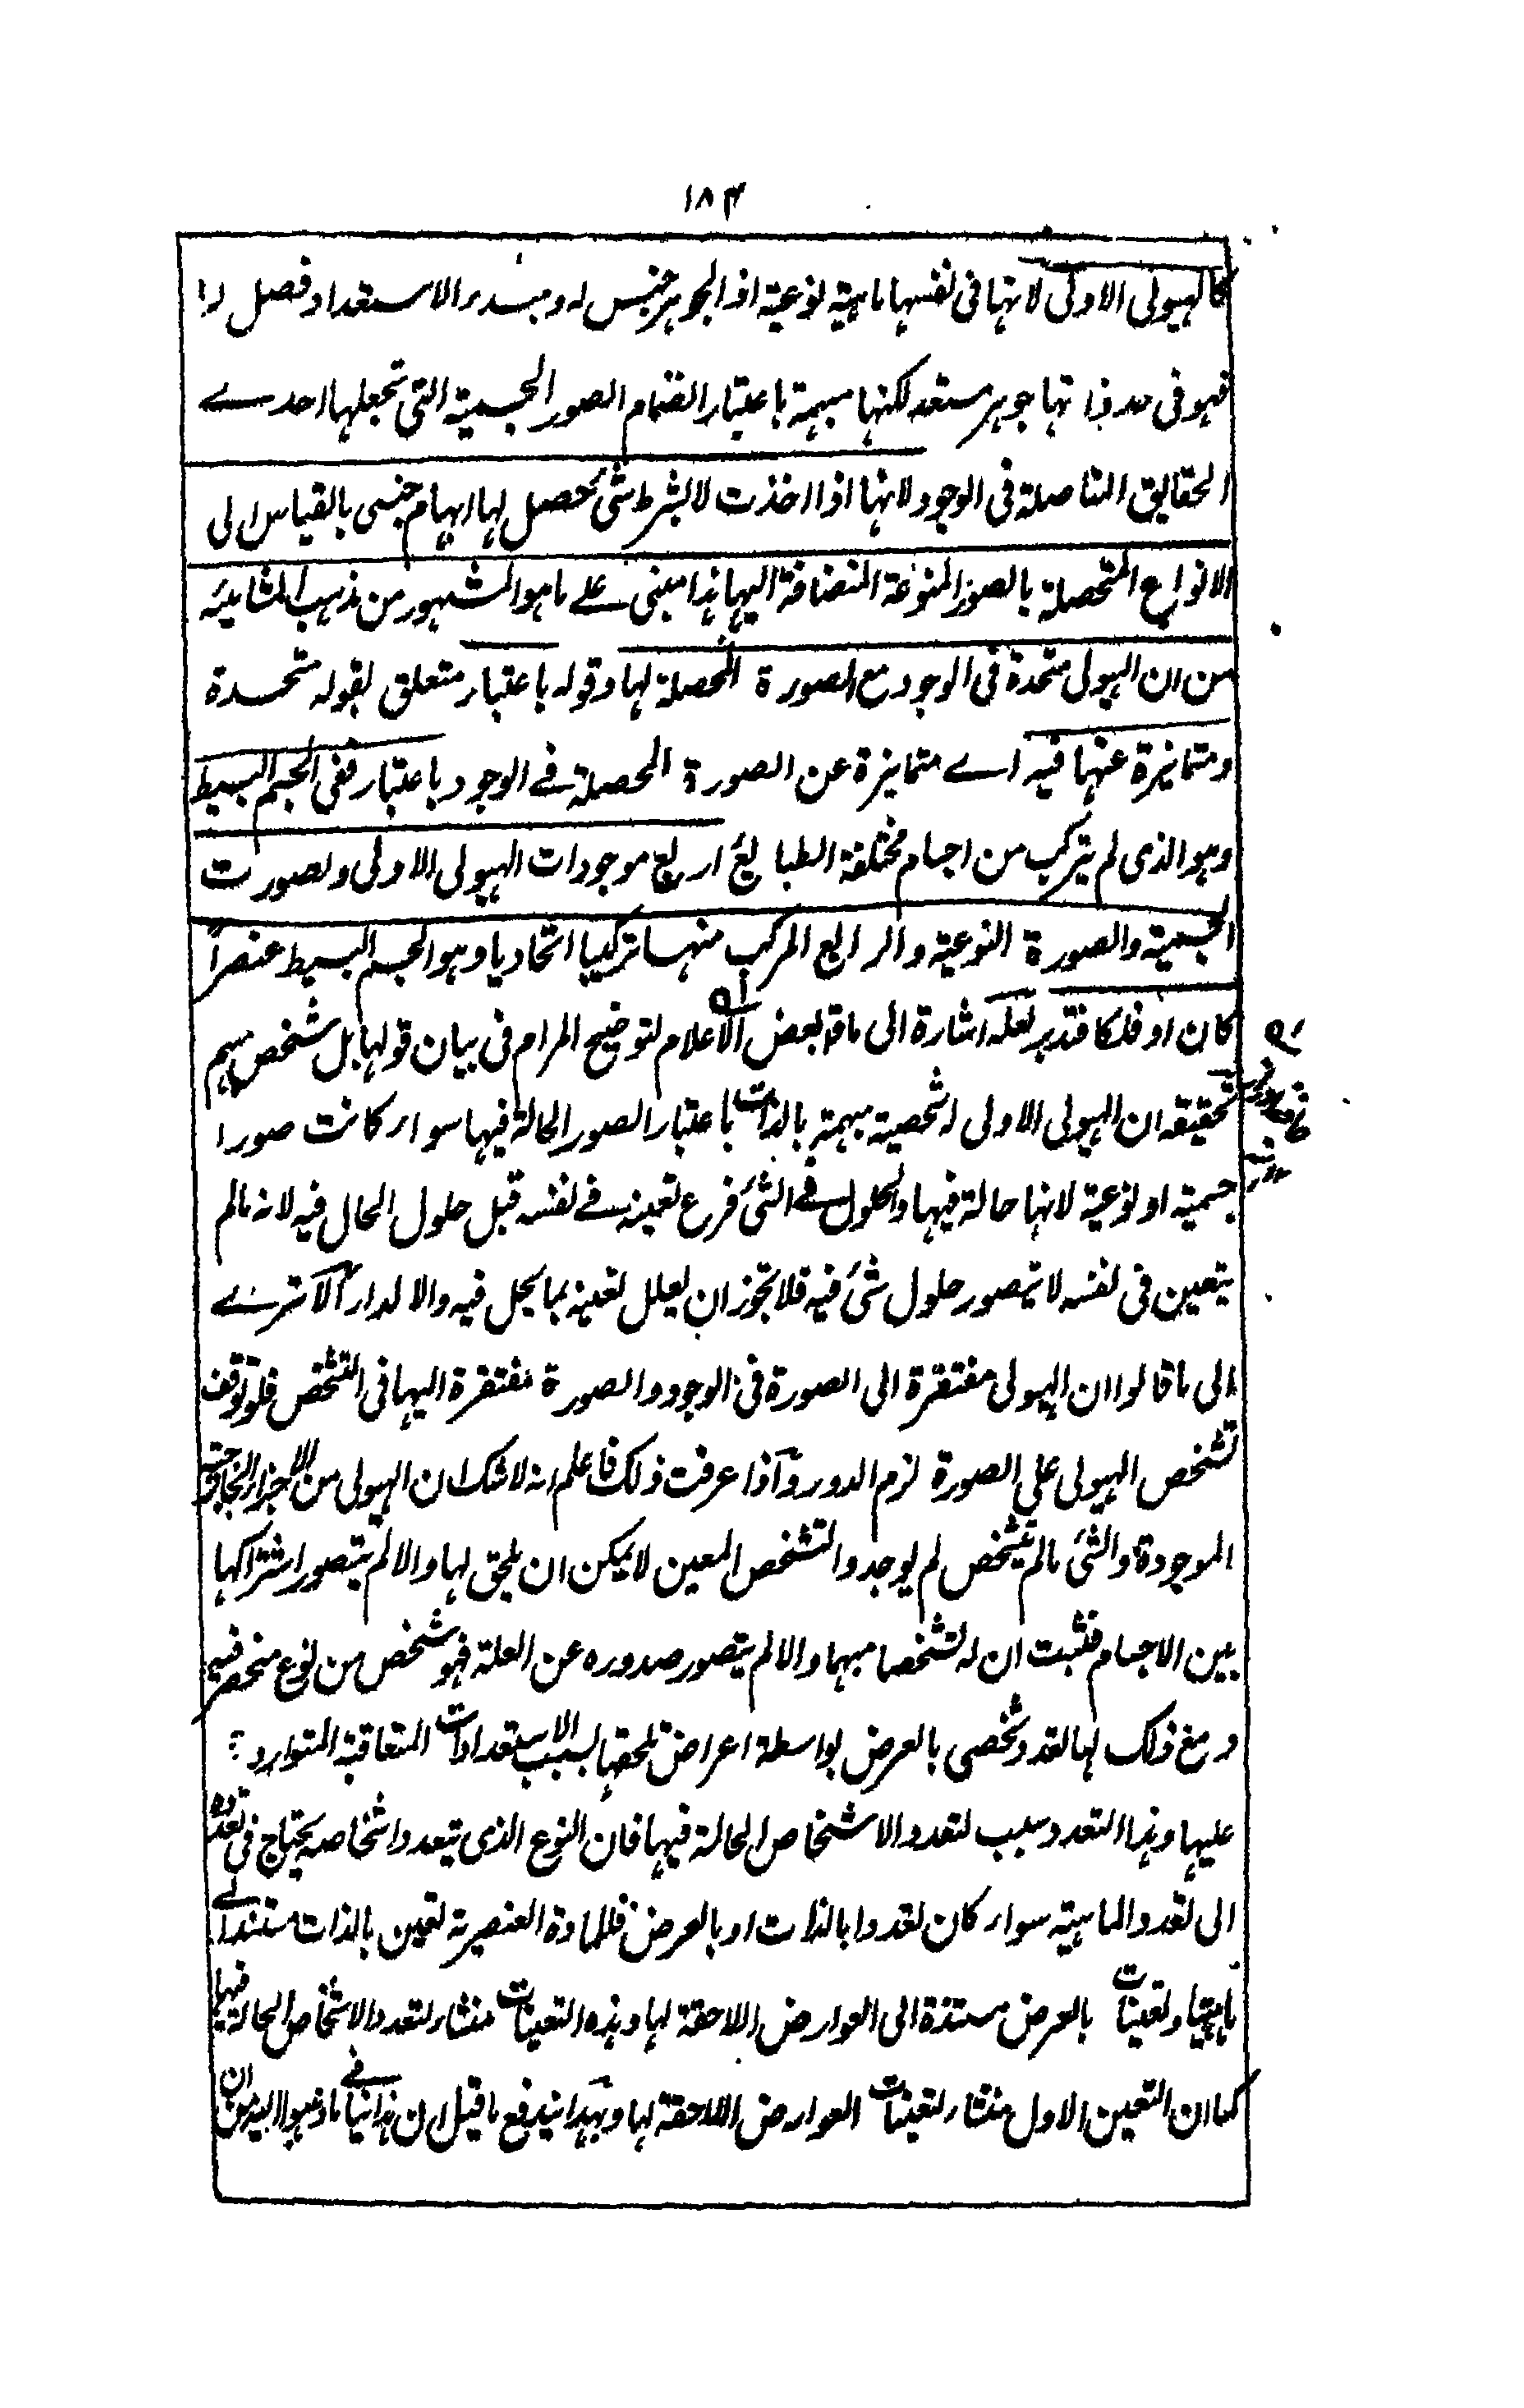 ١٨٣
كالهيولى الاولى لانها فى نفسها ماهية نوعية اذ الجوهر جنس له ومبدء الاستعداد فصل لها
فهو فى حد ذاتها جوهر مستعد لكنها مبهمة باعتبار انضمام الصور الجسمية التى تجعلها احدے
الحقايق المتاصلة فى الوجود لانها اذا اخذت لا بشرط شئ يحصل لها ابهام جنسى بالقياس الى
الانواع المتحصلة بالصور المنوعة المنضافة اليها هذا مبنى علے ما هو المشهور من مذهب المشائيه
من ان الهيولى متحدة فى الوجود مع الصورة المحصلة لها وقوله باعتبار متعلق بقوله متحدة
ومتمايزة عنها فيه اے متمايزة عن الصورة المحصلة فے الوجود باعتبار ففى الجسم البسيط
وهو الذى لم يتركب من اجسام مختلفة الطبايع اربع موجودات الهيولى الاولى والصورت
الجسمية والصورة النوعية والرابع المركب منها تركيبا اتحاديا وهو الجسم البسيط عنصراً
كان او فلكا فتدبر لعله اشارة الى ما قال بعض الاعلام لتوضيح المرام فى بيان قولها بل شخص مبهم
تحقيقه ان الهيولى الاولى شخصية مبهمة بالذات باعتبار الصور الحالة فيها سواء كانت صورا
جسمية او نوعية لانها حالة فيها والحلول فے الشئ فرع تعينه فے نفسه قبل حلول الحال فيه لانه مالم
يتعين فى نفسه لا يتصور حلول شئ فيه فلا يجوز ان يعلل تعينه بما يحل فيه والا لدار الا ترے
الى ما قالوا ان الهيولى مفتقرة الى الصورة فى الوجود والصورة مفتقرة اليها فى التشخص فلو توقف
تشخص الهيولى على الصورة لزم الدور واذا عرفت ذلك فاعلم انه لا شك ان الهيولى من الاجزاء الخارجية
الموجودة والشئ مالم يتشخص لم يوجد والتشخص المعين لا يمكن ان يلحق لها والا لم يتصور اشتراكها
بين الاجسام فثبت ان له تشخصا مبهما والا لم يتصور صدوره عن العلة فهو شخص من نوع منحصر فيه
ومع ذلك لها تعدد شخصى بالعرض بواسطة اعراض تلحقها بسبب الاستعدادات المتعاقبة المتواردة
عليها وهذا التعدد سبب لتعدد الاشخاص الحالة فيها فان النوع الذى يتعدد اشخاصه يحتاج فى تعدده
الى تعدد الماهية سواء كان تعددا بالذات او بالعرض فللمادة العنصرية تعين بالذات مستند الے
ماهيتها وتعينات بالعرض مستندة الى العوارض اللاحقة لها وهذه التعينات منشاء لتعدد الاشخاص الحالة فيها
كما ان التعين الاول منشاء لتعينات العوارض اللاحقة لها وبهذا يندفع ما قيل ان هذا ينافے ما ذهبوا اليه من ان